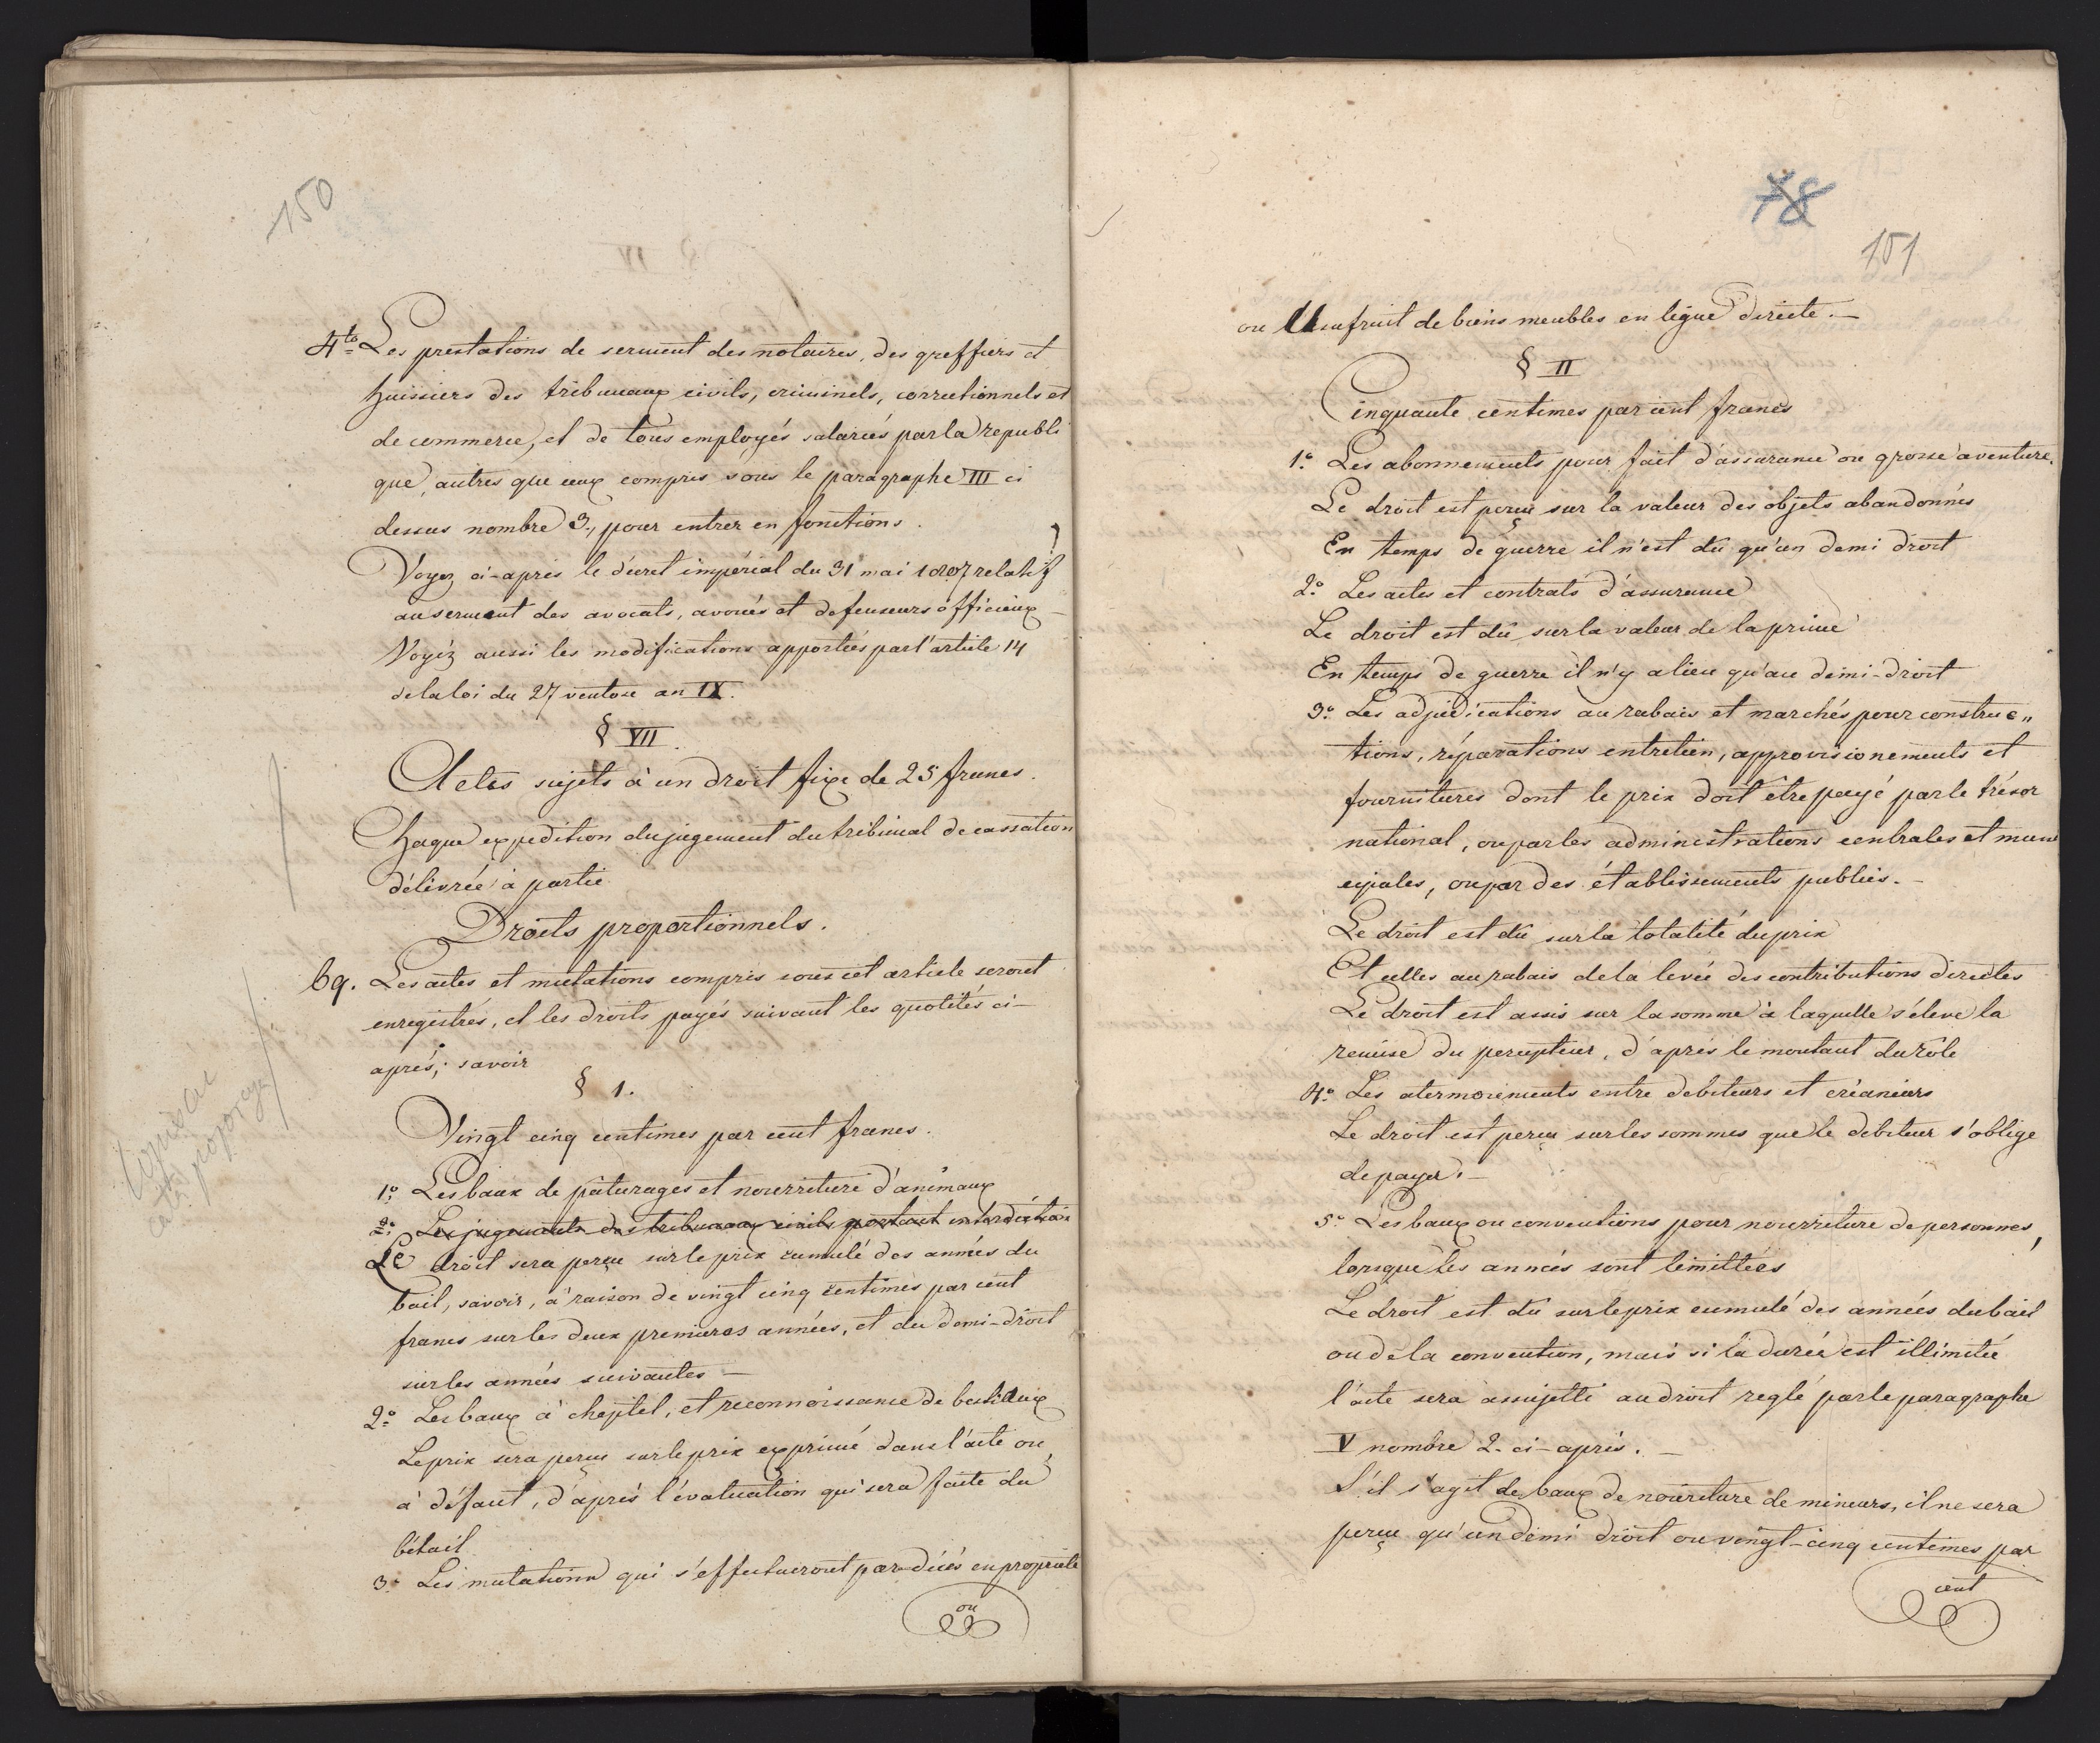 150
4to Les prestations de serment des notaires, des greffiers et
huissiers des tribunaux civils, criminels, correctionnels et
de commerce, et de tous employés salariés par la republi
que, autres que ceux compris sous le paragraphe III ci
dessus nombre 3., pour entrer en fonctions.
Voyez ci-après le décret impérial du 31 mai 1807 relatif
au serment des avocats, avoués et defenseurs officieux –
Voyéz aussi les modifications apportées par l'article 14
de la loi du 27 ventose an IX.
§ VII.
Actes sujets à un droit fixe de 25 francs.
Chaque expedition du jugement du tribunal de cassation
délivrée à partie
Droits proportionnels.
69. Les actes et mutations compris sous cet article seront
enregistrés, et les droits payés suivant les quotités ci-
après; savoir
§ 1.
Vingt cinq centimes par cent francs.
1.° Les baux de pâturages et nourriture d'animaux
2.° Les jugements des tribunaux civils portant interdiction
Le droit sera perçu sur le prix cumulé des années du
bail, savoir, à raison de vingt cinq centimes par cent
francs sur les deux premieres années, et du demi-droit
sur les années suivantes –
2.° Les baux à cheptel, et reconnoissance de bestiaux
Le prix sera perçu sur le prix exprimé dans l'acte ou,
à défaut, d'après l'évaluation qui sera faite du
bétail
3.° Les mutations qui s'effectueront par décès en propriété
ou
78
151
ou Usufruit de biens meubles en ligne directe. –
§ II
Cinquante centimes par cent francs
1.° Les abonnements pour fait d'assurance ou grosse aventure.
Le droit est perçu sur la valeur des objets abandonnés
En temps de guerre il n'est dû qu'un demi droit
2.° Les actes et contrats d'assurance
Le droit est dû sur la valeur de la prime
En temps de guerre il n'y a lieu qu'au demi-droit
3.° Les adjudications au rabais et marchés pour construc„
tions, réparations entretien, approvisionements et
fournitures dont le prix doit être payé par le trésor
national, ou par les administrations centrales et muni
cipales, ou par des établissements publics. –
Le droit est dû sur la totalité du prix
Et celles au rabais de la levée des contributions directes
Le droit est assis sur la somme à laquelle s'éleve la
remise du percepteur, d'après le montant du rôle
4.° Les atermoiements entre debiteurs et créanciers
Le droit est perçu sur les sommes que le debiteur s'oblige
de payer. –
5.° Les baux ou conventions pour nourriture de personnes,
lorsque les années sont limittées
Le droit est dû sur le prix cumulé des années du bail
ou de la convention, mais si la durée est illimitée
l'acte sera assujetti au droit reglé par le paragraphe
V nombre 2. ci-après. –
S'il s'agit de baux de nourriture de mineurs, il ne sera
perçu qu'un demi droit ou vingt-cinq centimes par
cent